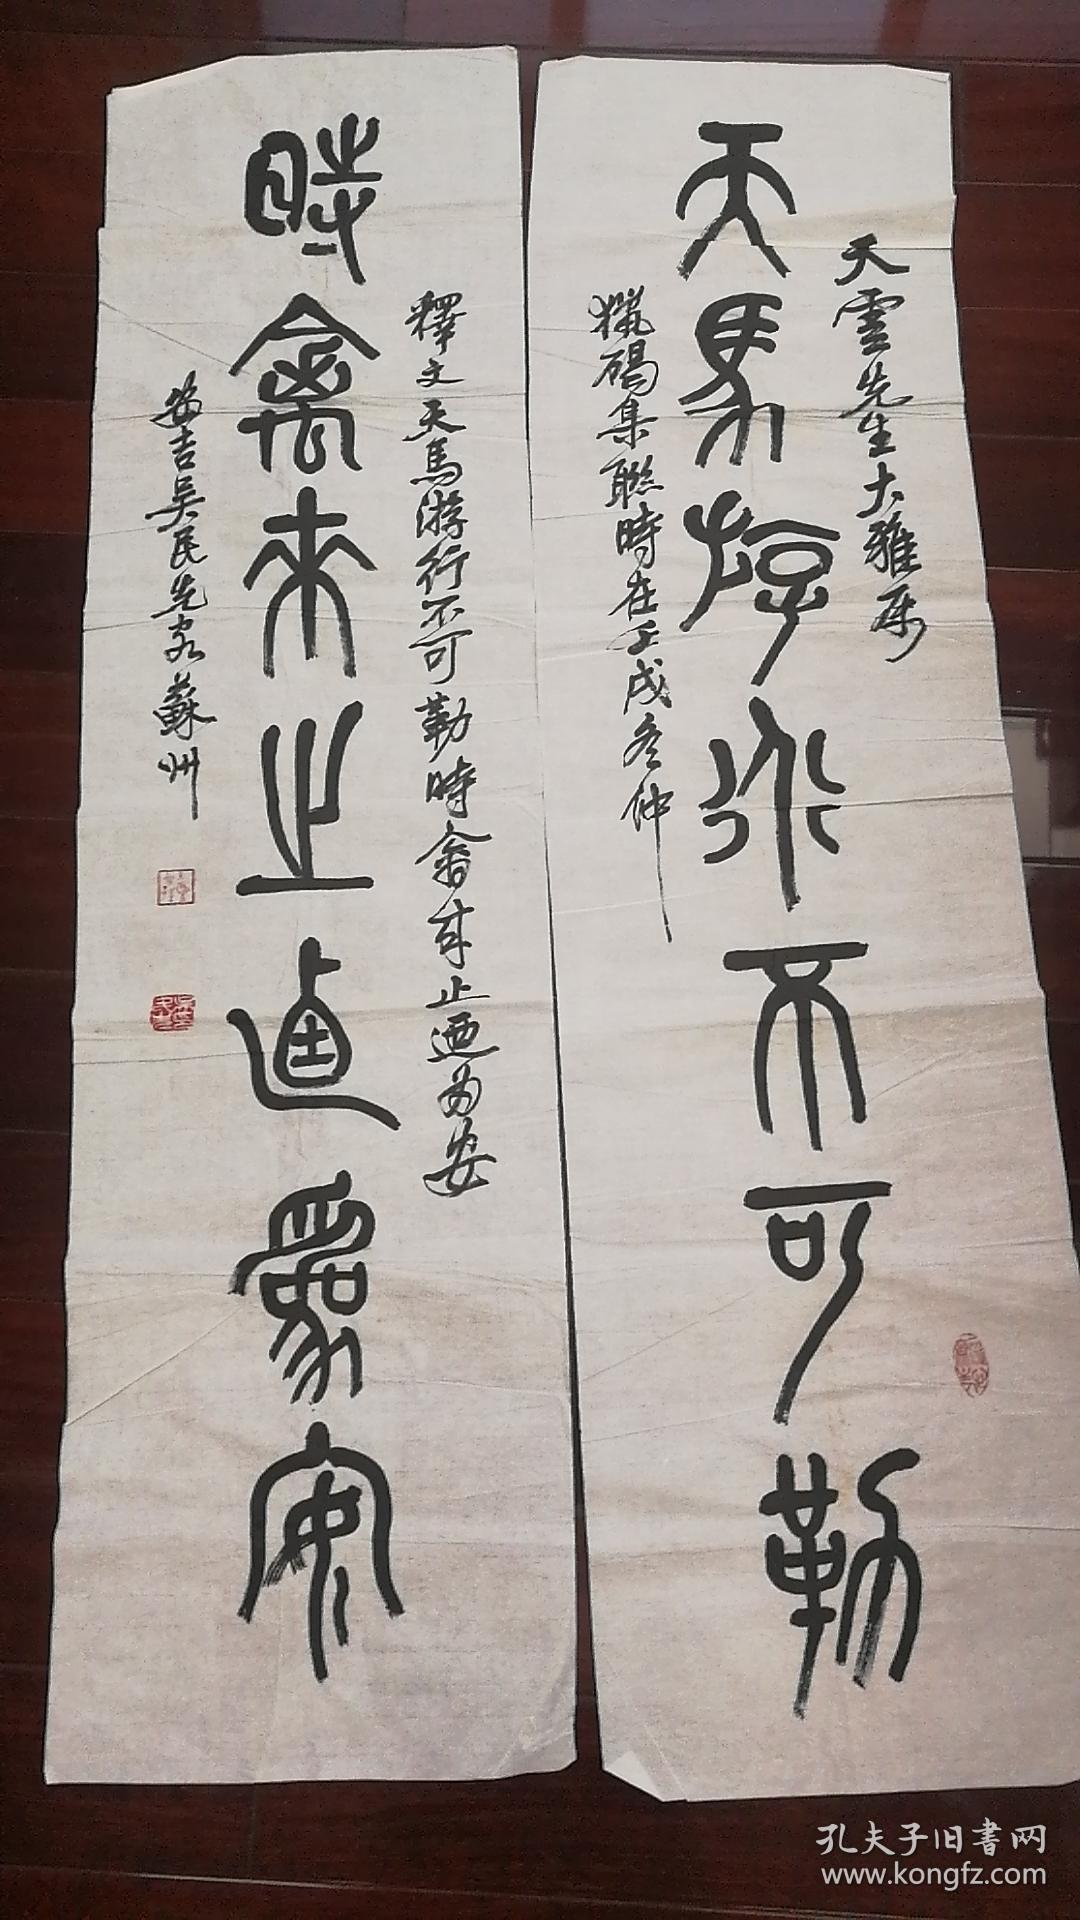 天馬斿行不可勒
天雲先生大雅屬
獵碣集聯時在壬戌冬仲
時禽來止迺爲安
釋文天馬游行不可勒時禽來止迺为安
安吉吴民先客蘇州
孔夫子旧書网
www.kongfz.com